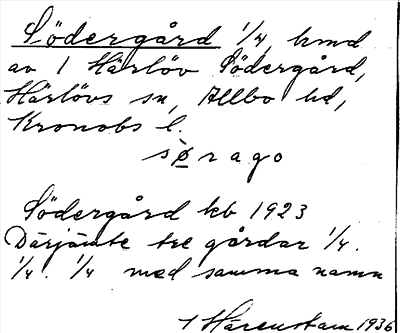 Södergård 1/4, hmd
av 1 Härlöv Södergård,
Härlövs sn, Allbo hd,
Kronobs l.
sø̀rago
Södergård kb 1923
Därjämte tre gårdar 1/4.
1/4. 1/4 med samma namn
Härenstam 1936